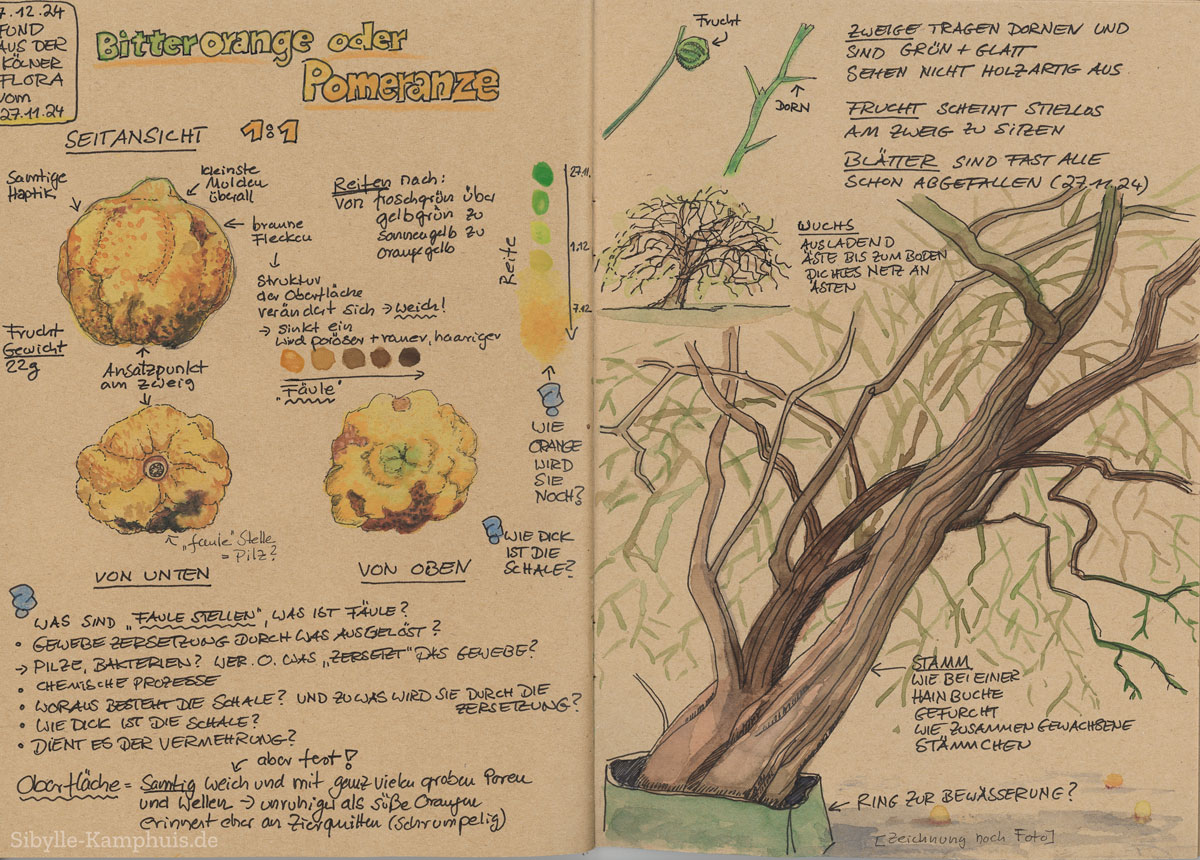 7.12.24
FUND
AUS DER
KÖLNER
FLORA
vom
27.11.24
Bitterorange oder
Pomeranze
SEITANSICHT 1:1
Samtige
Haptik
kleinste
Mulden
überall
braune
Flecken
Struktur
der Oberfläche
verändert sich → weich!
→ sinkt ein
wird poröser + rauer, haariger
"Fäule"
Reifen nach:
von froschgrün über
gelbgrün zu
sonnengelb zu
orangegelb
Reife
27.11.
1.12
7.12
Frucht
Gewicht
22g
Ansatzpunkt
am Zweig
? WIE
ORANGE
WIRD
SIE
NOCH?
? WIE DICK
IST DIE
SCHALE?
"faule" Stelle
= Pilz?
VON UNTEN
VON OBEN
? WAS SIND "FAULE STELLEN", WAS IST FÄULE?
• GEWEBE ZERSETZUNG DURCH WAS AUSGELÖST?
→ PILZE, BAKTERIEN? WER O. WAS "ZERSETZT" DAS GEWEBE?
• CHEMISCHE PROZESSE
• WORAUS BESTEHT DIE SCHALE? UND ZU WAS WIRD SIE DURCH DIE
ZERSETZUNG?
• WIE DICK IST DIE SCHALE?
• DIENT ES DER VERMEHRUNG?
aber fest!
Oberfläche = Samtig weich und mit ganz vielen groben Poren
und Wellen → unruhiger als süße Orangen
erinnert eher an Zierquitten (schrumpelig)
Sibylle-Kamphuis.de
Frucht
DORN
ZWEIGE TRAGEN DORNEN UND
SIND GRÜN + GLATT
SEHEN NICHT HOLZARTIG AUS
FRUCHT SCHEINT STIELLOS
AM ZWEIG ZU SITZEN
BLÄTTER SIND FAST ALLE
SCHON ABGEFALLEN (27.11.24)
WUCHS
AUSLADEND
ÄSTE BIS ZUM BODEN
DICHTES NETZ AN
ÄSTEN
STAMM
WIE BEI EINER
HAINBUCHE
GEFURCHT
WIE ZUSAMMENGEWACHSENE
STÄMMCHEN
RING ZUR BEWÄSSERUNG?
[Zeichnung nach Foto]